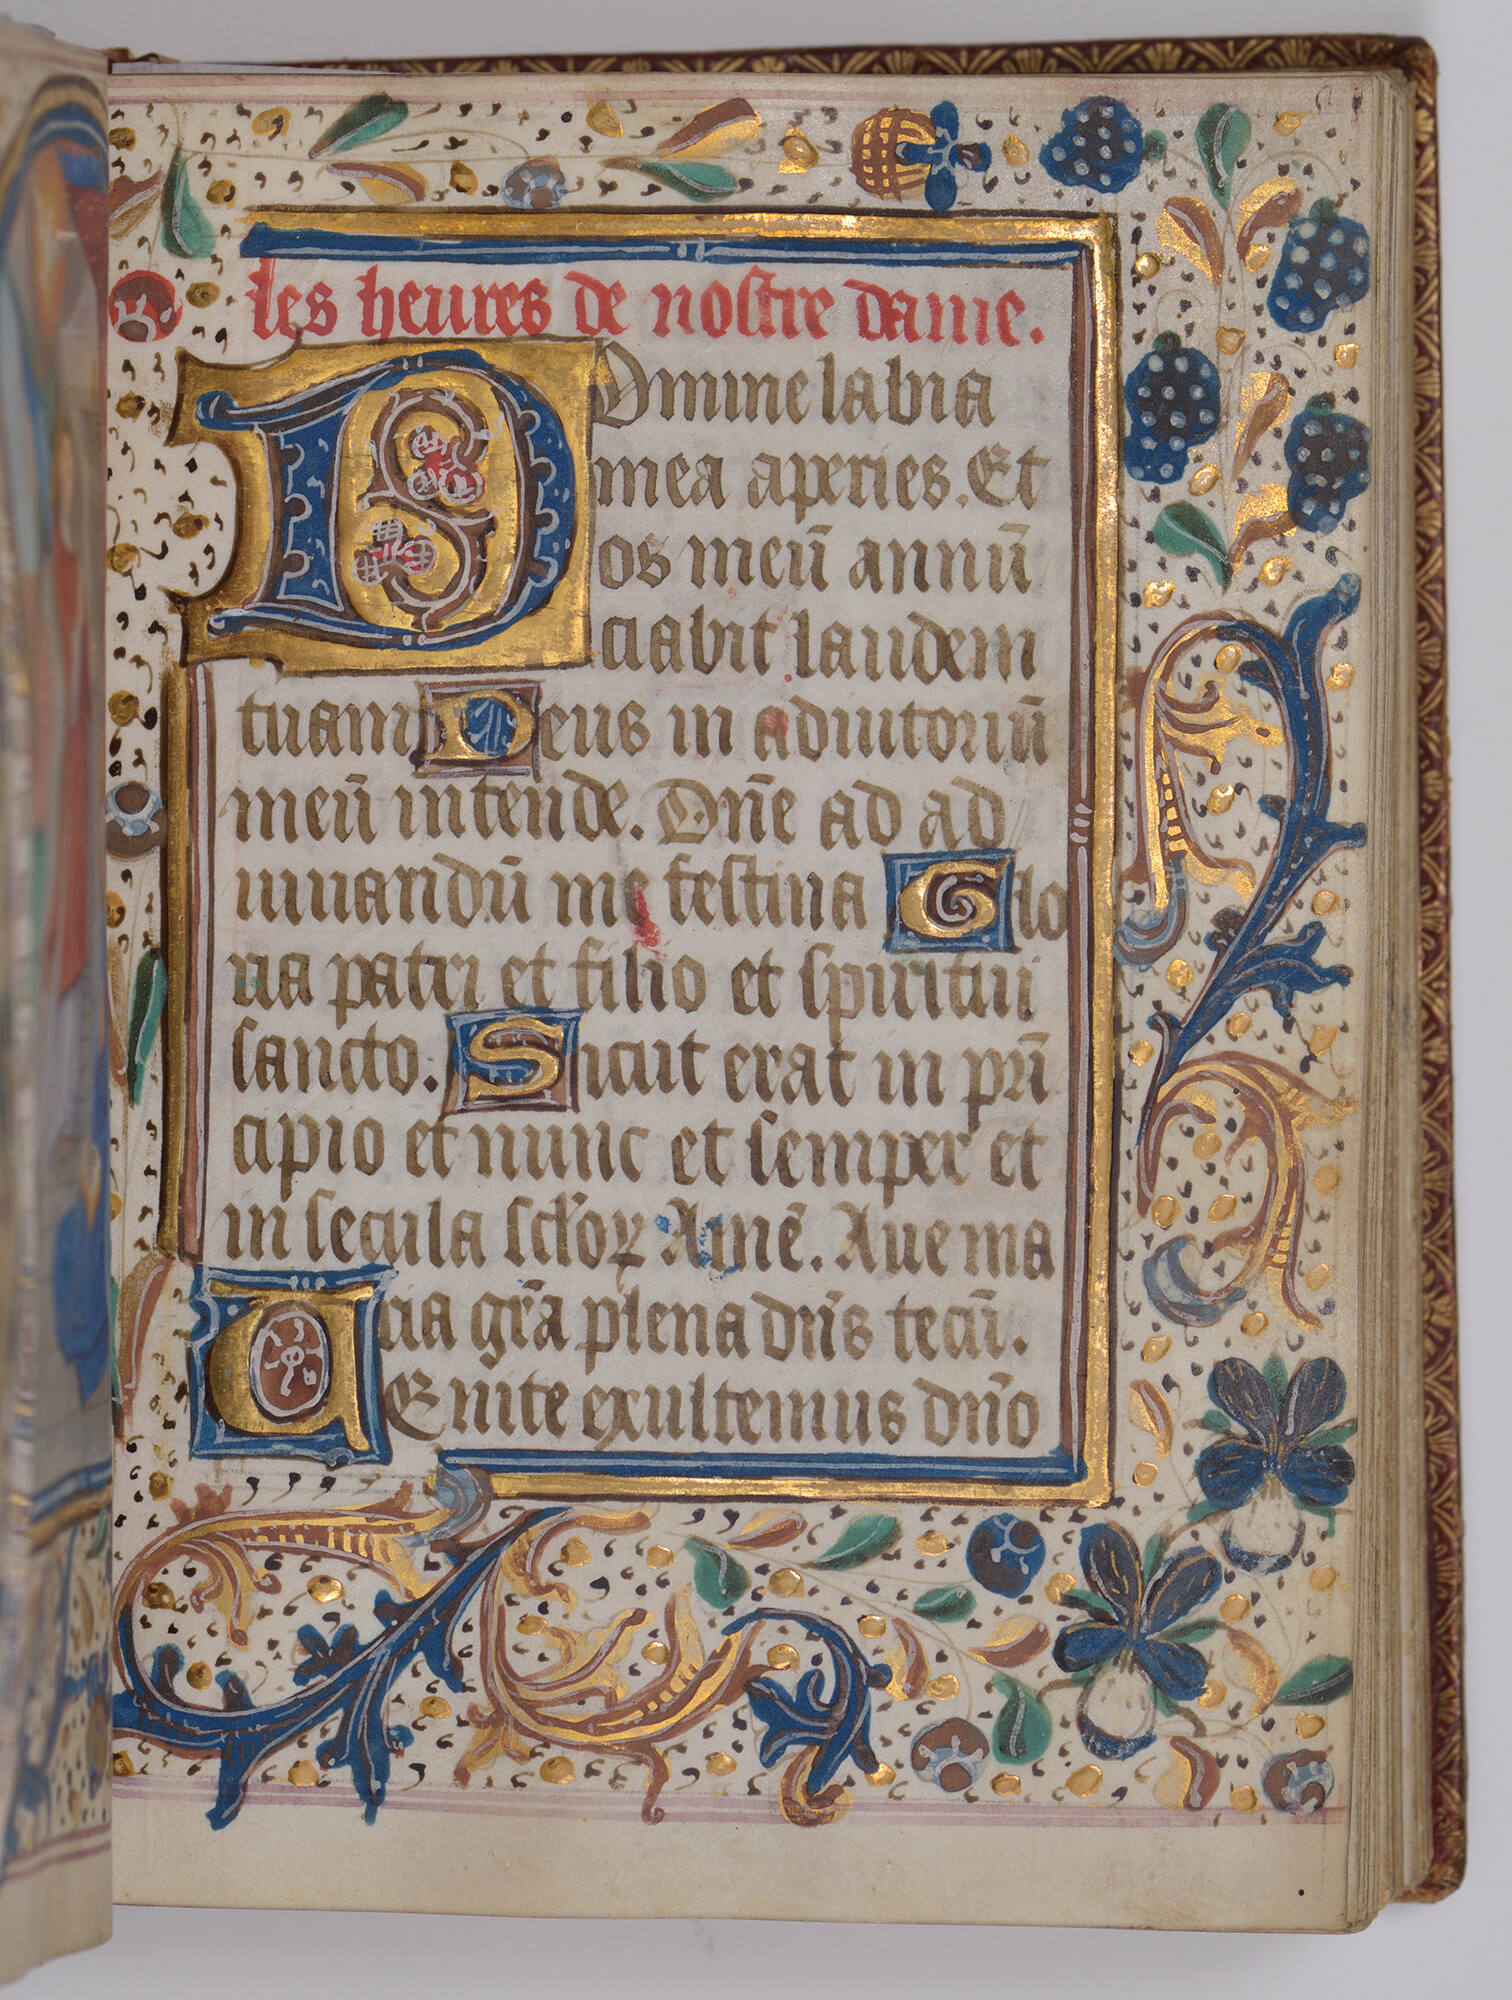 les heures de nostre dame.
Domine labia
mea aperies. Et
os meū annū
ciabit laudem
tuam Deus in adiutoriū
meū intende. Dn̄e ad ad
iuuandū me festina Glo
ria patri et filio et spiritui
sancto. Sicut erat in pri̅
cipio et nunc et semper et
in secula sclor̄ꝝ Amē. Aue ma
ria gr̄a plena dn̄s tecū.
UEnite exultemus dn̄o